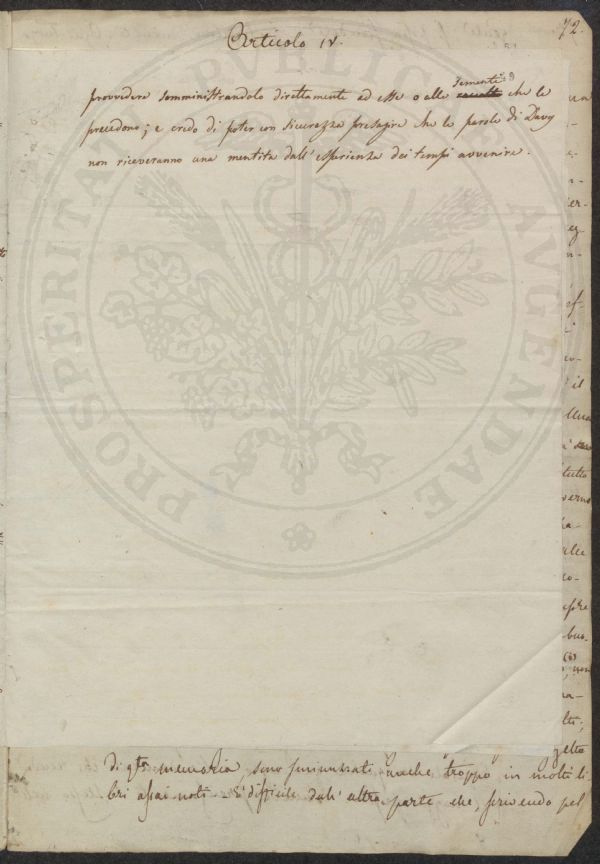 72.
Articolo IV.
sementi
provvedere somministrandolo direttamente ad esse o alle raccolte che le
precedono; e credo di poter con sicurezza presagire che le parole di Davy
non riceveranno una mentita dall'esperienza dei tempi avvenire.
PROSPERITATI PUBLICAE AUGENDAE
il
tutto
verno
Di qta memoria, sono annunziati anche troppo in molti li
bri assai noti. È difficile dall'altra parte che, scrivendo pel